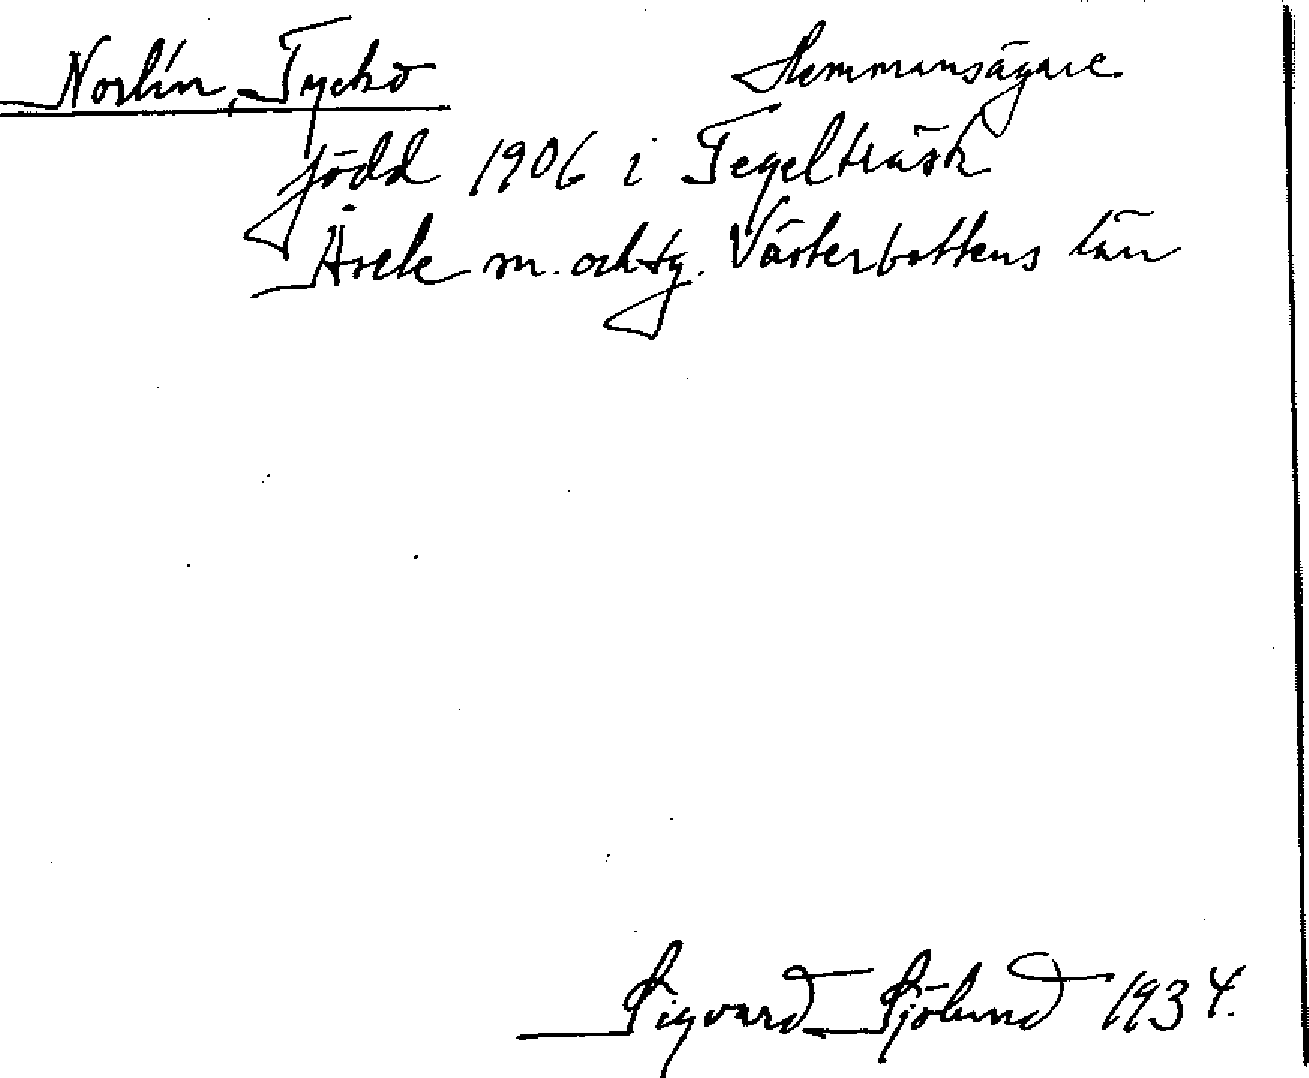 Norlin, Tycho Hemmansägare.
född 1906 i Tegelträsk
Åsele m. och tg. Västerbottens län
Sigvard Sjölund 1934.